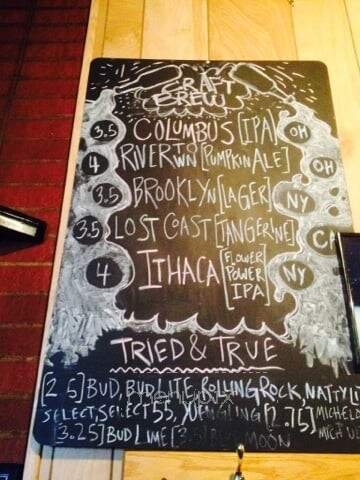 CRAFT
BREW
3.5 COLUMBUS [IPA] OH
4 RIVERTWN [PUMPKIN ALE] OH
3.5 BROOKLYN [LAGER] NY
3.5 LOST COAST [TANGERINE] CA
4 ITHACA [FLOWER POWER IPA] NY
TRIED & TRUE
[2.5] BUD, BUD LITE, ROLLING ROCK, NATTY LI
SELECT, SELECT 55, YUENGLING [2.75] MICHEL
[3.25] BUD LIME [3.5] MOON MICH